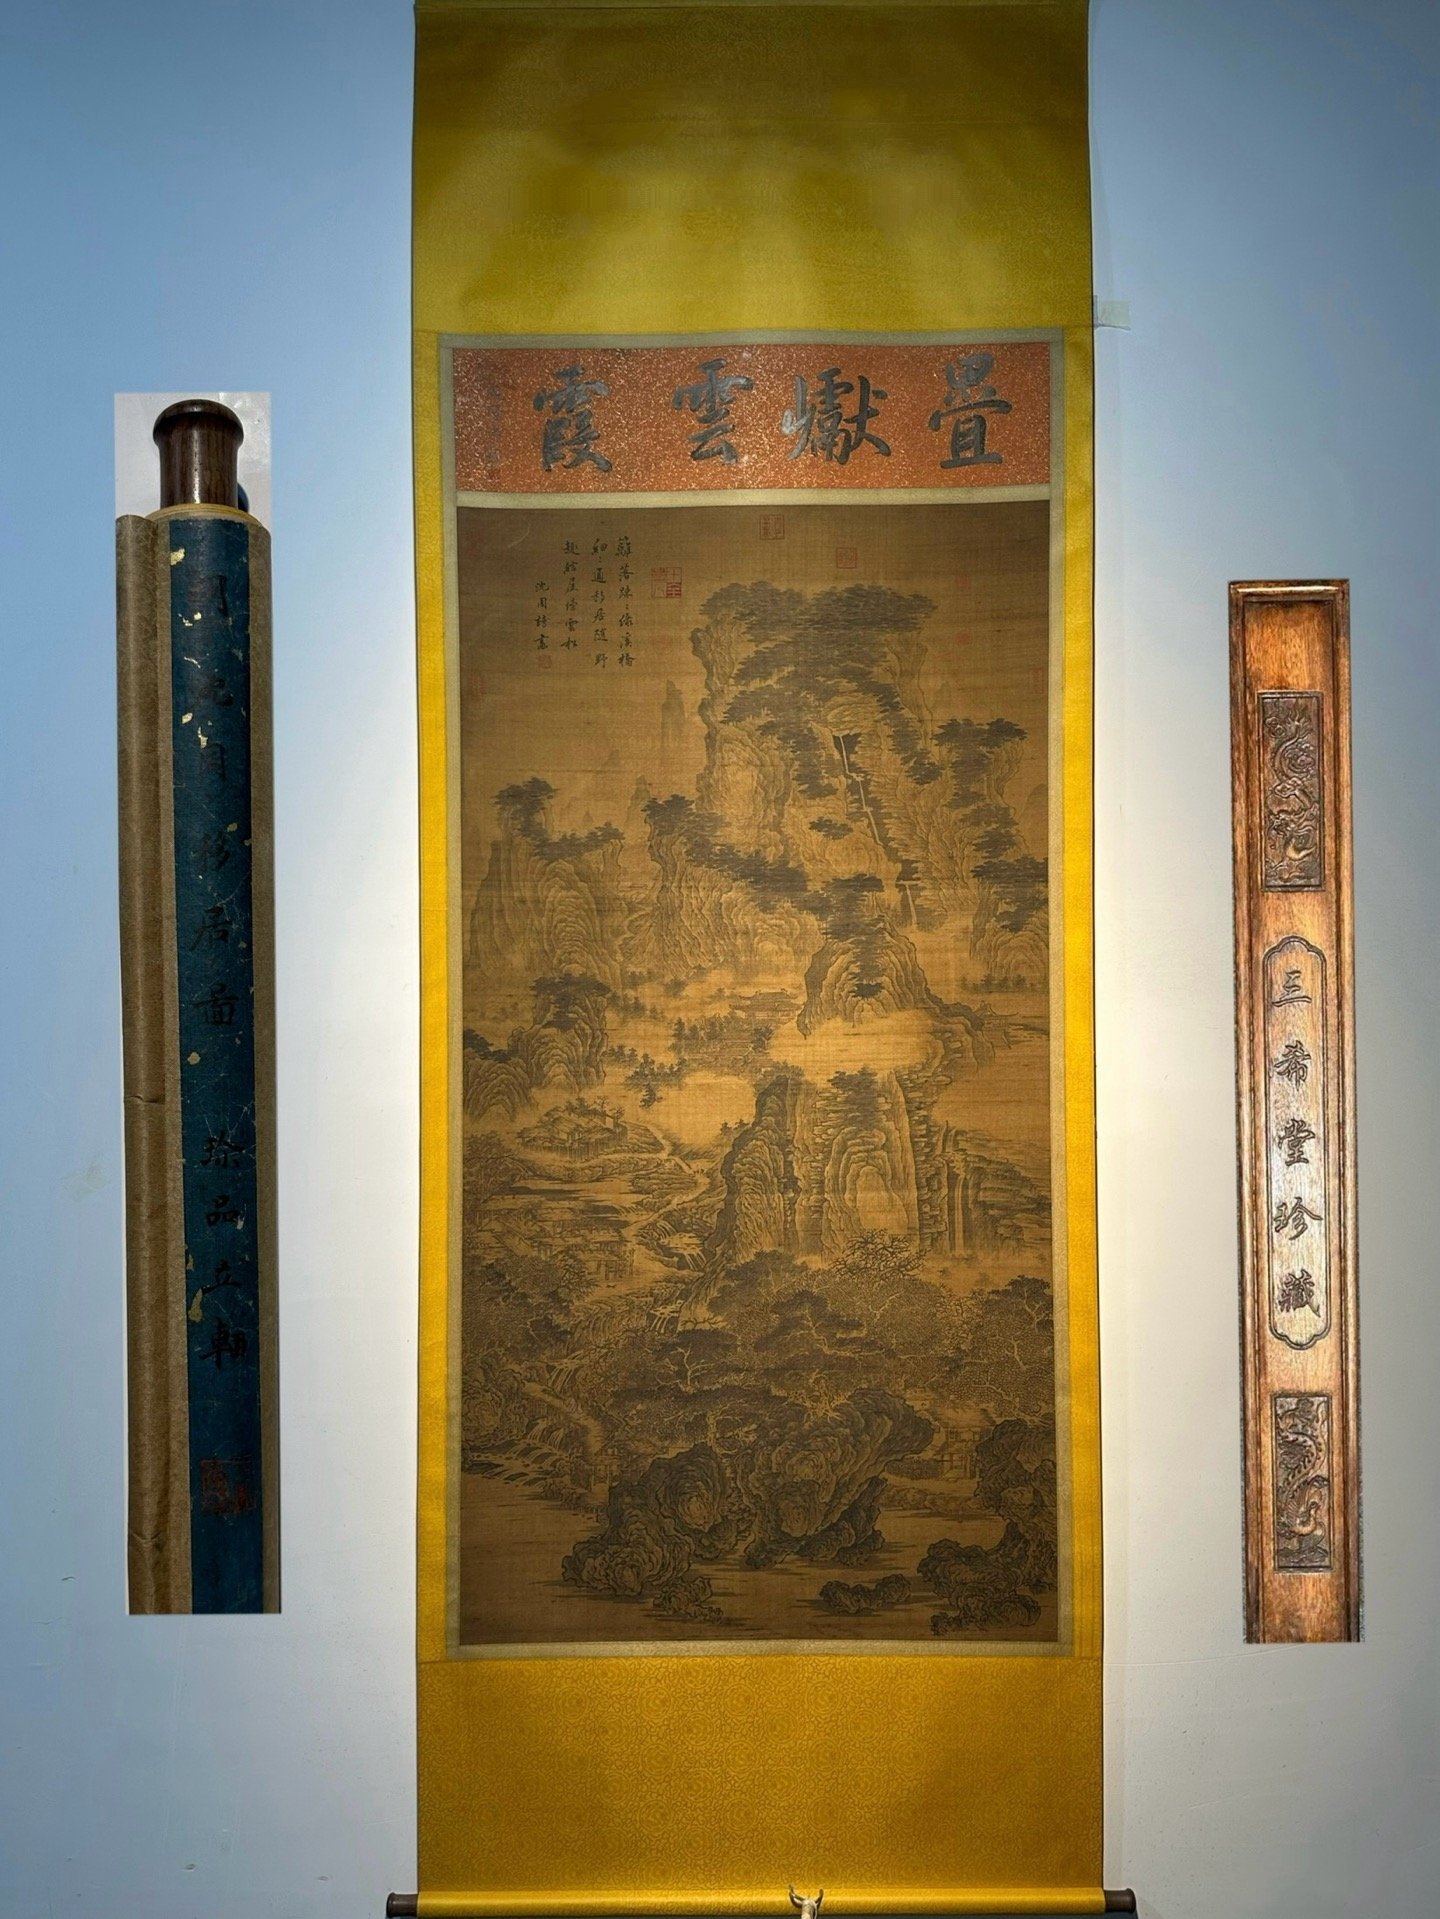 疊巘雲霞
蘿落疎〻綠溪橋
細〻通移居隨野
趣結屋傍雲松
沈周詩畫
明沈周移居圖 珍品立軸
三希堂珍藏